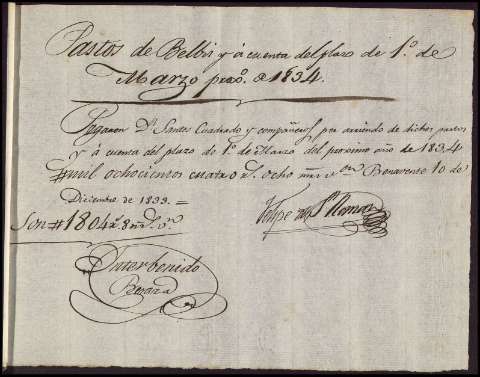 Pastos de Belbis y á cuenta del plazo de 1.º de
Marzo pxo. de 1834.
Pagaron D.n Santos Cuadrado y compañeros por arriendo de dichos pastos
y á cuenta del plazo de 1.º de Marzo del proximo año de 1834
mil ochocientos cuatro r.s ocho mrs v.on Benavente 10 de
Diciembre de 1833. =
Son # 1804 r.s 8 mrs v.n
Felipe de S.n Roman
Intervenido